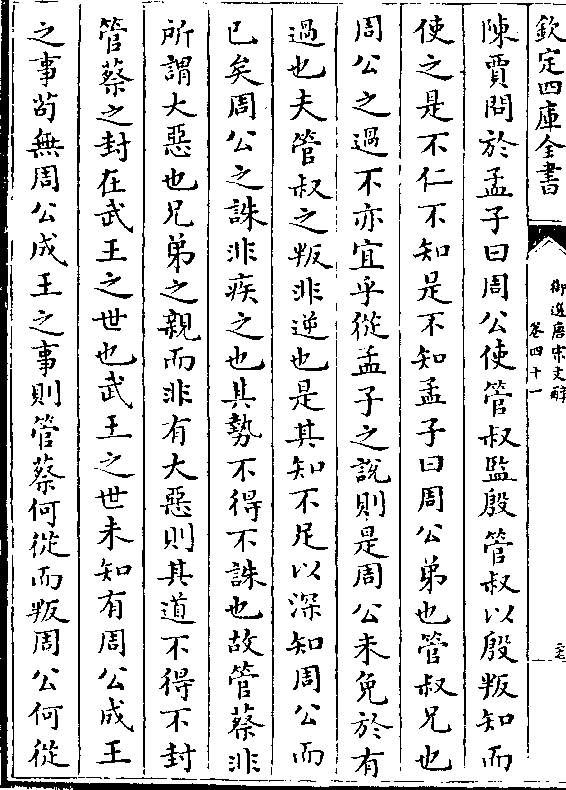 欽定四庫全書
御選唐宋文醇
卷四十一
陳賈問於孟子曰周公使管叔監殷管叔以殷叛知而
使之是不仁不知是不知孟子曰周公弟也管叔兄也
周公之過不亦宜乎從孟子之說則是周公未免於有
過也夫管叔之叛非逆也是其知不足以深知周公而
已矣周公之誅非疾之也其勢不得不誅也故管蔡非
所謂大惡也兄弟之親而非有大惡則其道不得不封
管蔡之封在武王之世也武王之世未知有周公成王
之事茍無周公成王之事則管蔡何從而叛周公何從